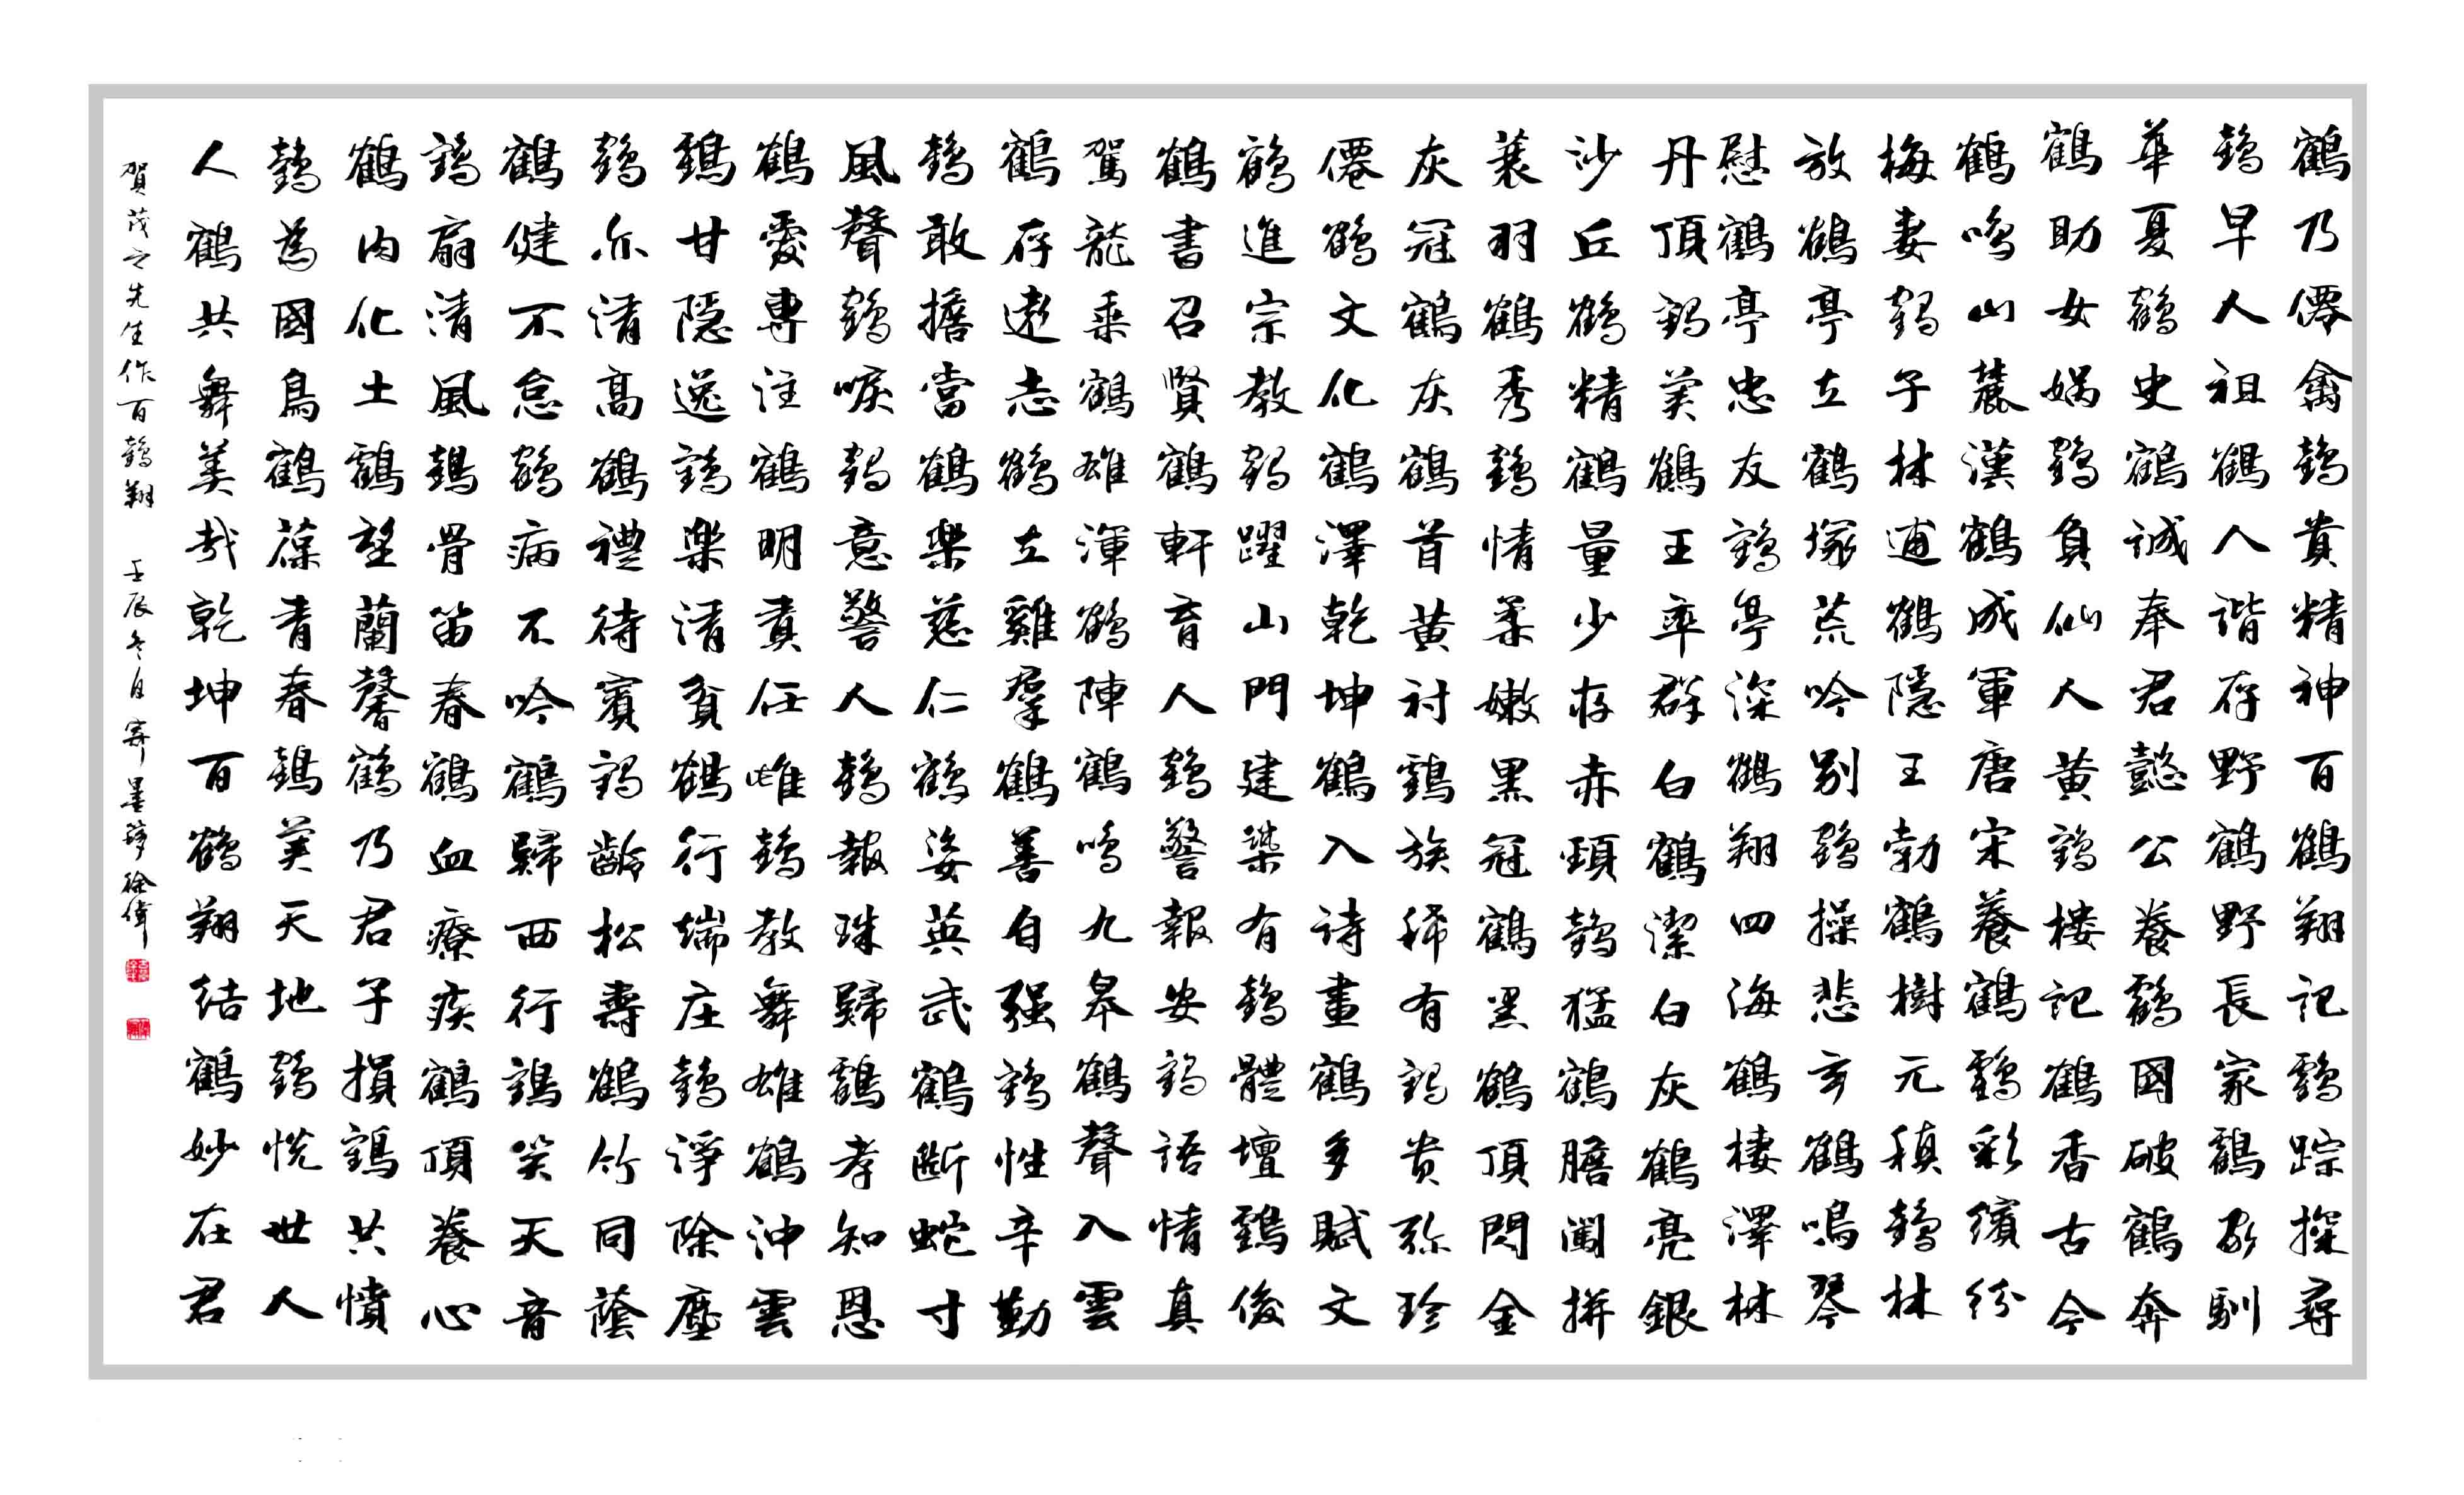 鶴乃僊禽鶴貴精神百鶴翔記鶴踪探尋
鶴早人祖鶴人諧存野鶴野長家鶴家馴
華夏鶴史鶴誠奉君懿公養鶴國破鶴奔
鶴助女媧鶴負仙人黄鶴樓記鶴香古今
鶴鳴山麓漢鶴成軍唐宋養鶴鶴彩繽紛
梅妻鶴子林逋鶴隱王勃鶴樹元稹鶴林
放鶴亭立鶴塚荒吟别鶴操悲玄鶴鳴琴
慰鶴亭忠友鶴亭深鶴翔四海鶴棲澤林
丹頂鶴美鶴王率群白鶴潔白灰鶴亮銀
沙丘鶴精鶴量少存赤頸鶴猛鶴膽闖拼
蓑羽鶴秀鶴情柔嫩黑冠鶴黑鶴頂閃金
灰冠鶴灰鶴首黄衬鶴族稀有鶴贵弥珍
僊鶴文化鶴澤乾坤鶴入诗畫鶴多賦文
鶴進宗教鶴躍山門建築有鶴體壇鶴俊
鶴書召賢鶴軒育人鶴警報安鶴語情真
駕龍乘鶴雄渾鶴陣鶴鳴九皋鶴聲入雲
鶴存遠志鶴立雞羣鶴善自强鶴性辛勤
鶴敢擔當鶴樂慈仁鶴姿英武鶴斷蛇寸
風聲鶴唳鶴意警人鶴報珠歸鶴孝知恩
鶴愛專注鶴明責任雌鶴教舞雄鶴沖雲
鶴甘隱逸鶴樂清貧鶴行端庄鶴淨除塵
鶴亦清高鶴禮待賓鶴齡松壽鶴竹同蔭
鶴健不怠鶴病不吟鶴歸西行鶴笑天音
鶴扇清風鶴骨笛春鶴血療疾鶴頂養心
鶴内化土鶴望蘭馨鶴乃君子損鶴共憤
鶴為國鳥鶴葆青春鶴美天地鶴悦世人
人鶴共舞美哉乾坤百鶴翔結鶴妙在君
賀茂之先生作百鶴翔 壬辰冬日 墨 徐偉